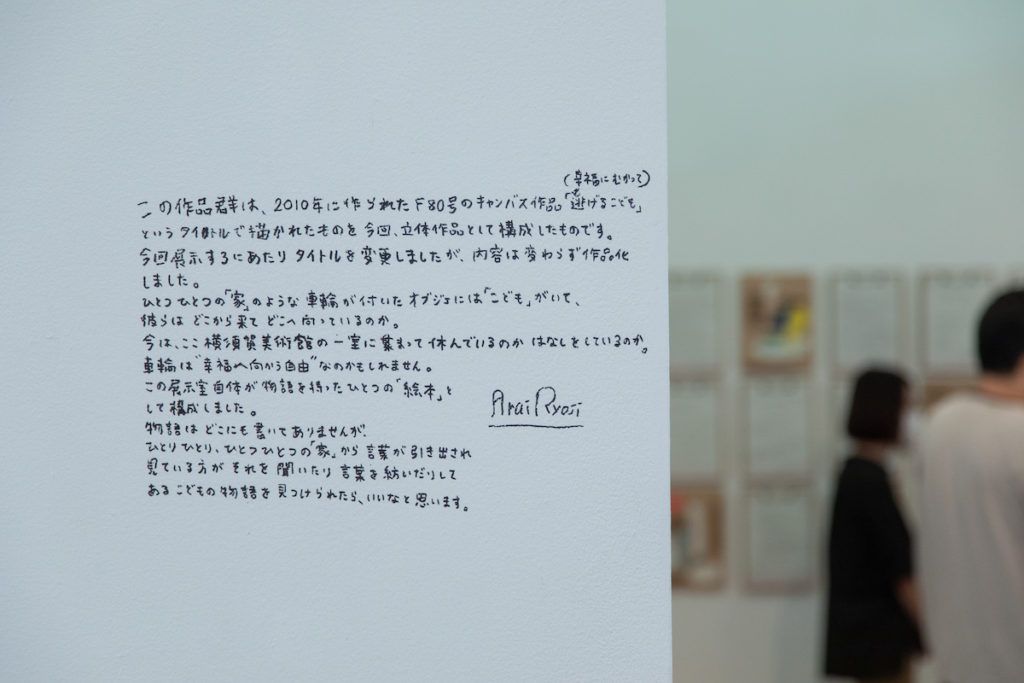 (幸福にむかって)
この作品群は、2010年に作られたF80号のキャンバス作品「逃げるこども」
というタイトルで描かれたものを今回、立体作品として構成したものです。
今回展示するにあたりタイトルを変更しましたが、内容は変わらず作品化
しました。
ひとつひとつの「家」のような車輪が付いたオブジェには「こども」がいて、
彼らはどこから来てどこへ向っているのか。
今は、ここ横須賀美術館の一室に集まって休んでいるのかはなしをしているのか。
車輪は"幸福へ向かう自由"なのかもしれません。
この展示室自体が物語を持ったひとつの「絵本」と
して構成しました。
物語はどこにも書いてありませんが、
ひとりひとり、ひとつひとつの「家」から言葉が引き出され
見ている方がそれを聞いたり言葉を紡いだりして
あるこどもの物語を見つけられたら、いいなと思います。
Arai Ryoji